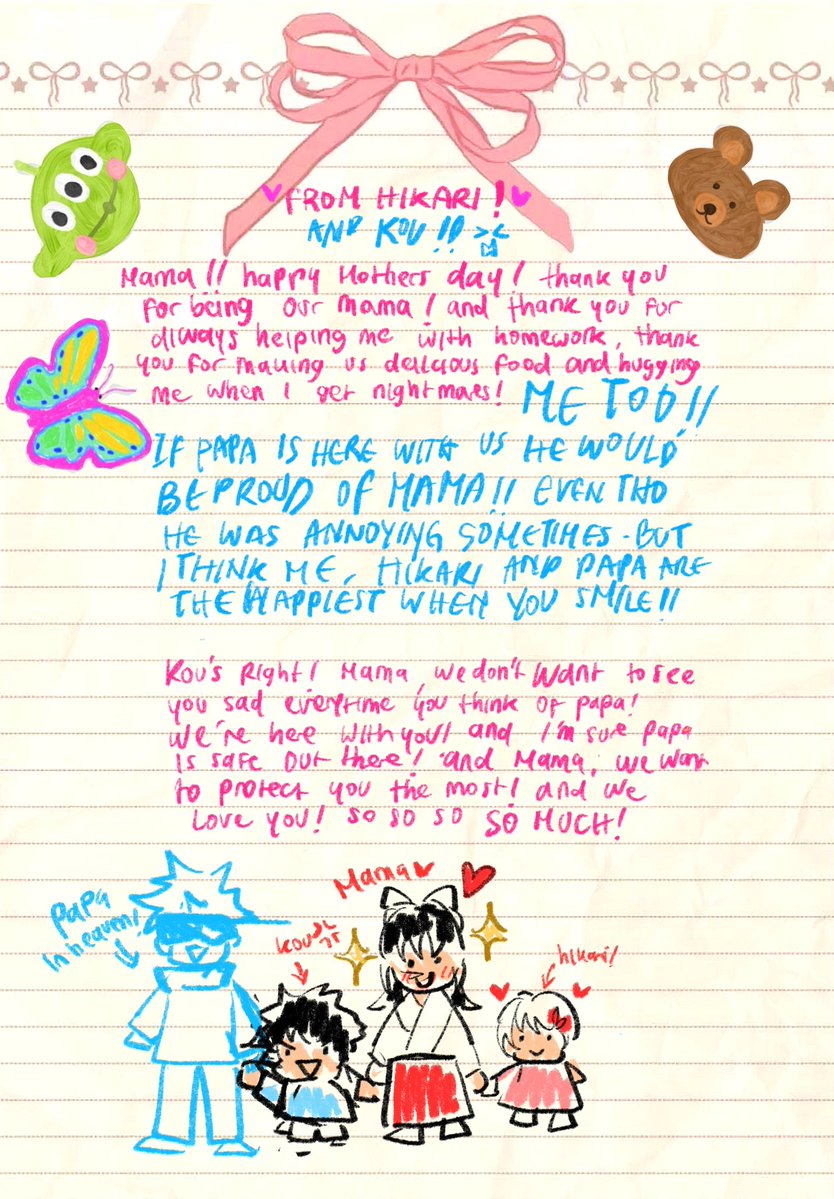 FROM HIKARI!
AND KOU!!
Mama!! happy Mothers day! thank you
for being our mama! and thank you for
always helping me with homework, thank
you for making us delicious food and hugging
me when I get nightmares! ME TOO!!
IF PAPA IS HERE WITH US HE WOULD
BE PROUD OF MAMA!! EVEN THO
HE WAS ANNOYING SOMETIMES. BUT
I THINK ME, HIKARI AND PAPA ARE
THE HAPPIEST WHEN YOU SMILE!!
Kou's Right! Mama, we don't want to see
you sad everytime you think of papa!
We're here with you! and I'm sure papa
is safe out there! and Mama, we want
to protect you the most! and we
Love you! so so so SO MUCH!
Mama
papa
in heaven!
kou
hikari!